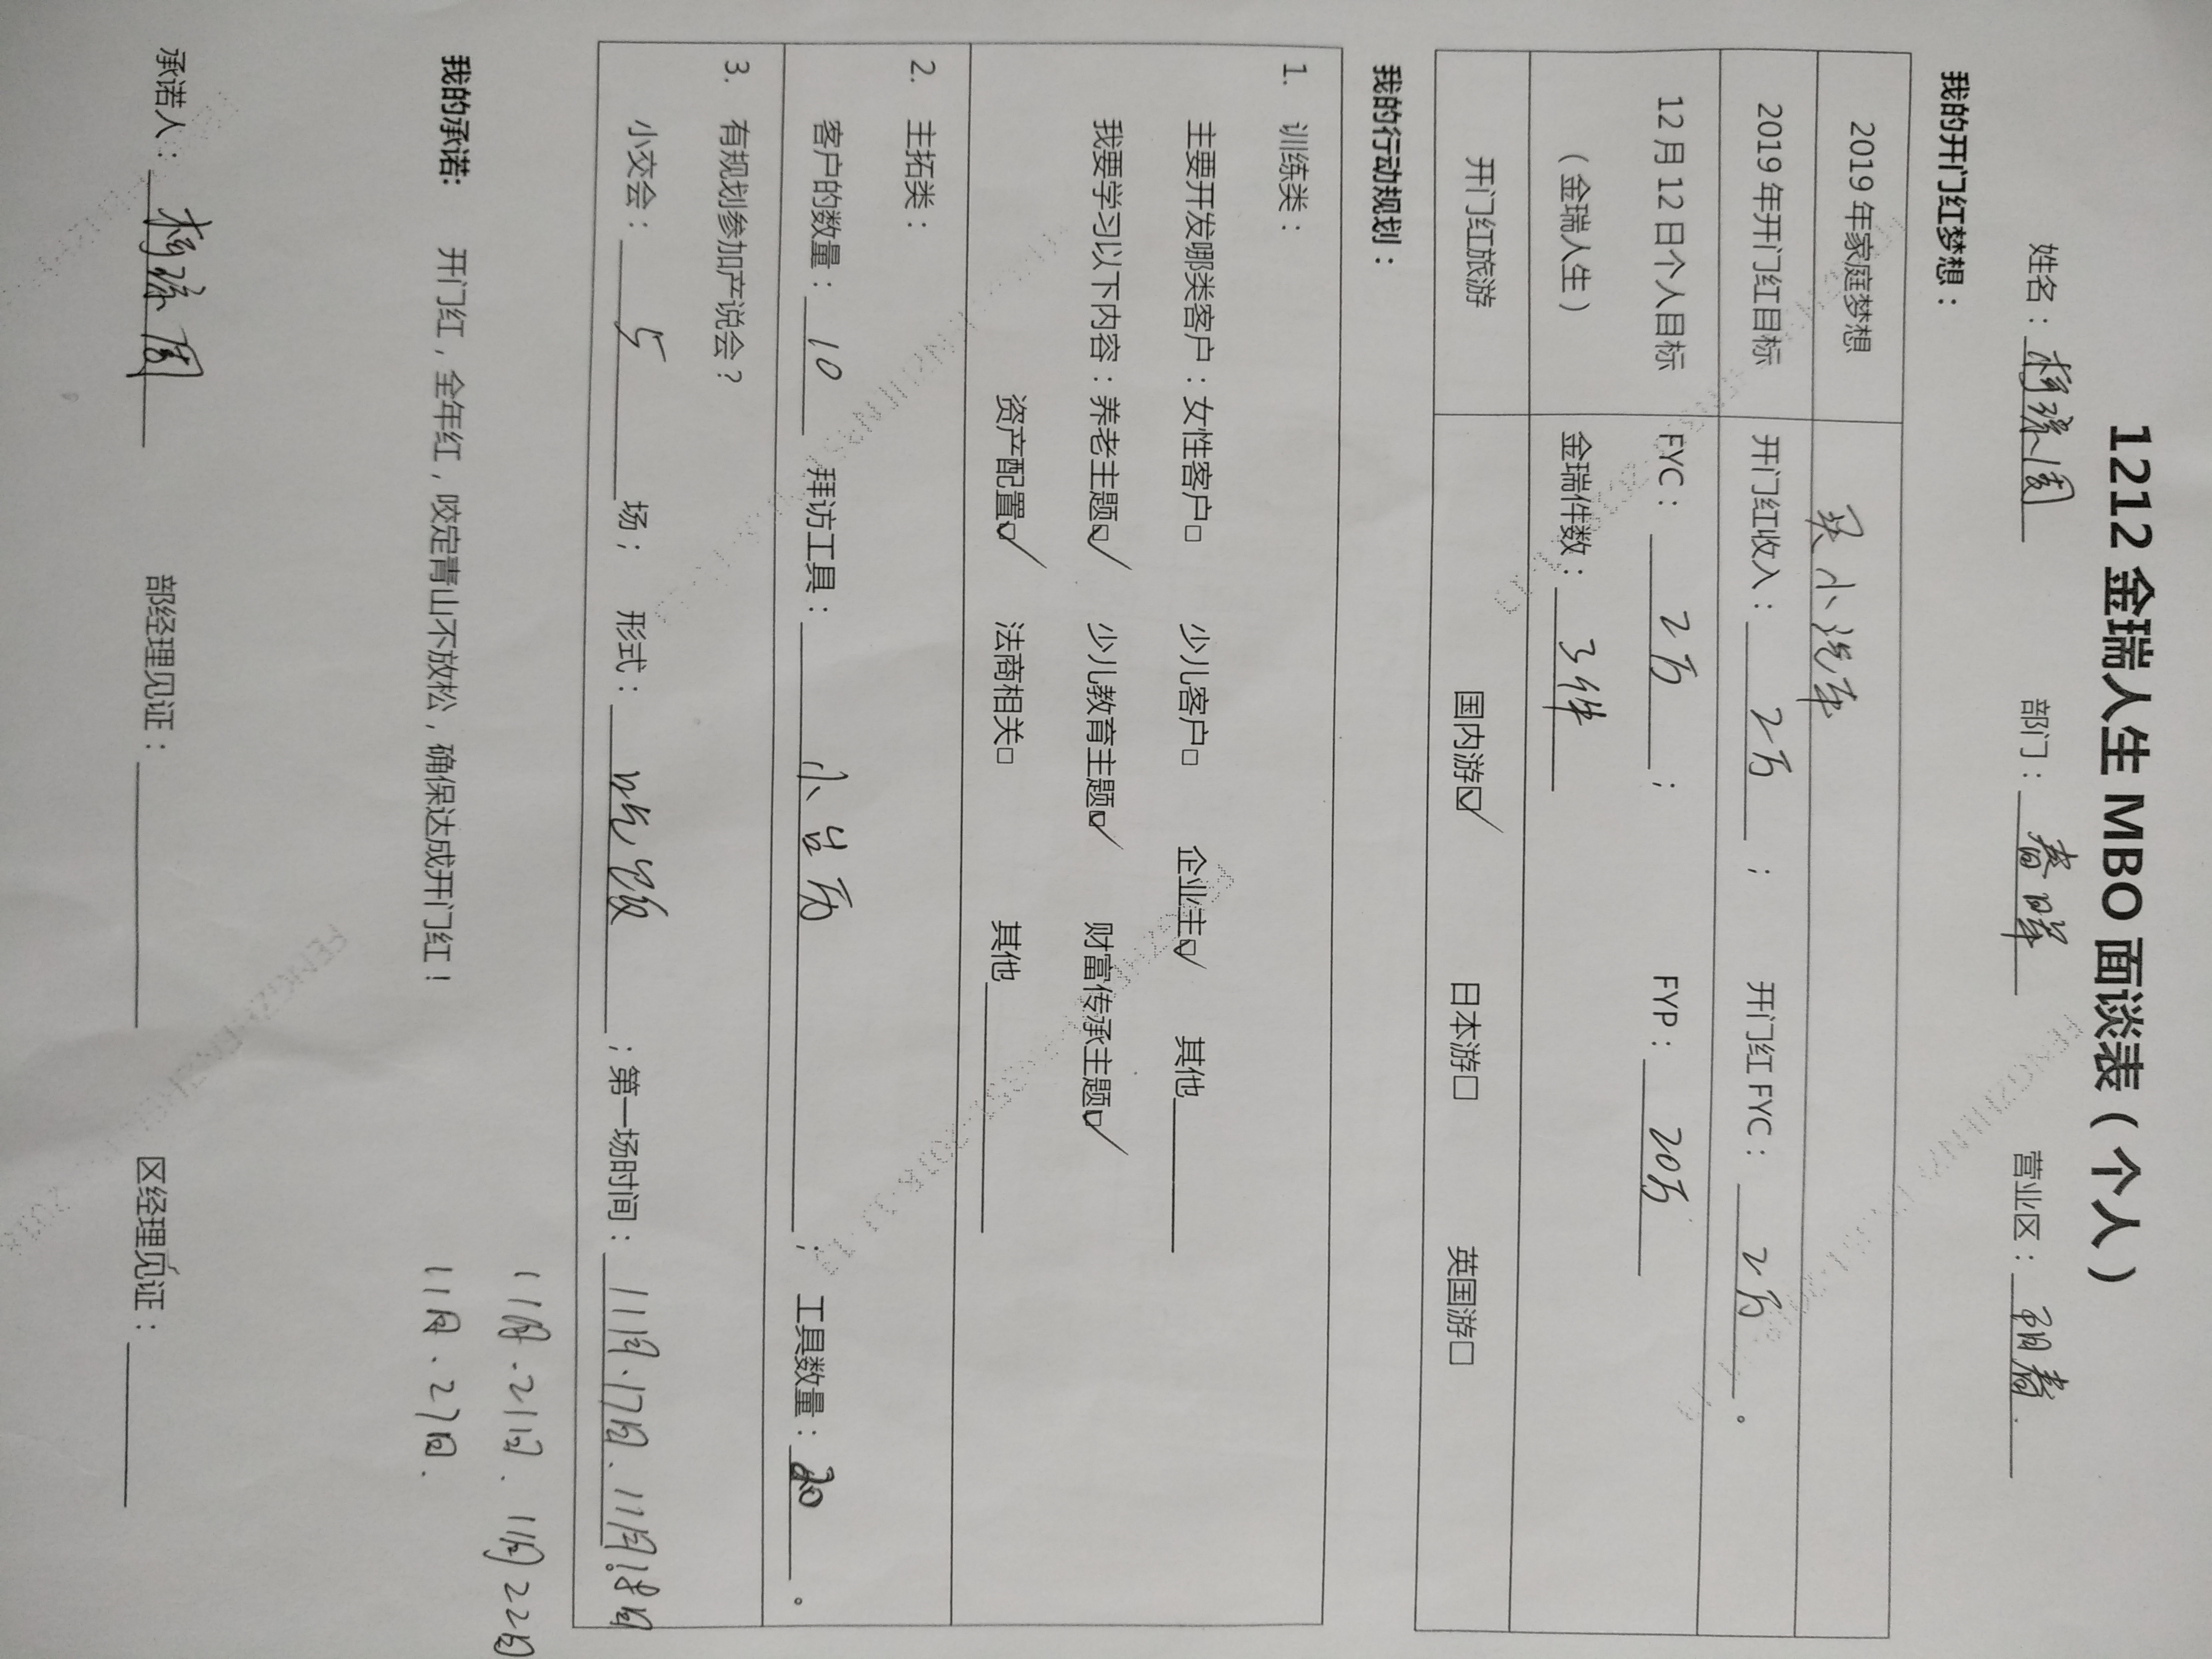 1212 金瑞人生 MBO 面谈表（个人）
姓名： 部门：春晖 营业区：胡春.
我的开门红梦想：
2019 年家庭梦想 买小汽车
2019 年开门红目标 开门红收入：2万； 开门红 FYC：2万。
12 月 12 日个人目标 FYC：2万； FYP：20万
（金瑞人生） 金瑞件数：3件
开门红旅游 国内游☑ 日本游□ 英国游□
我的行动规划：
1. 训练类：
主要开发哪类客户：女性客户□ 少儿客户□ 企业主☑ 其他
我要学习以下内容：养老主题☑ 少儿教育主题☑ 财富传承主题☑
资产配置☑ 法商相关□ 其他
2. 主拓类：
客户的数量：10 拜访工具：小台历； 工具数量：20。
3. 有规划参加产说会？
小交会：5 场； 形式：吃饭；第一场时间：11月.17日.11月18日
11月.21日.11月22日
11月.27日.
我的承诺： 开门红，全年红，咬定青山不放松，确保达成开门红！
承诺人： 部经理见证： 区经理见证：